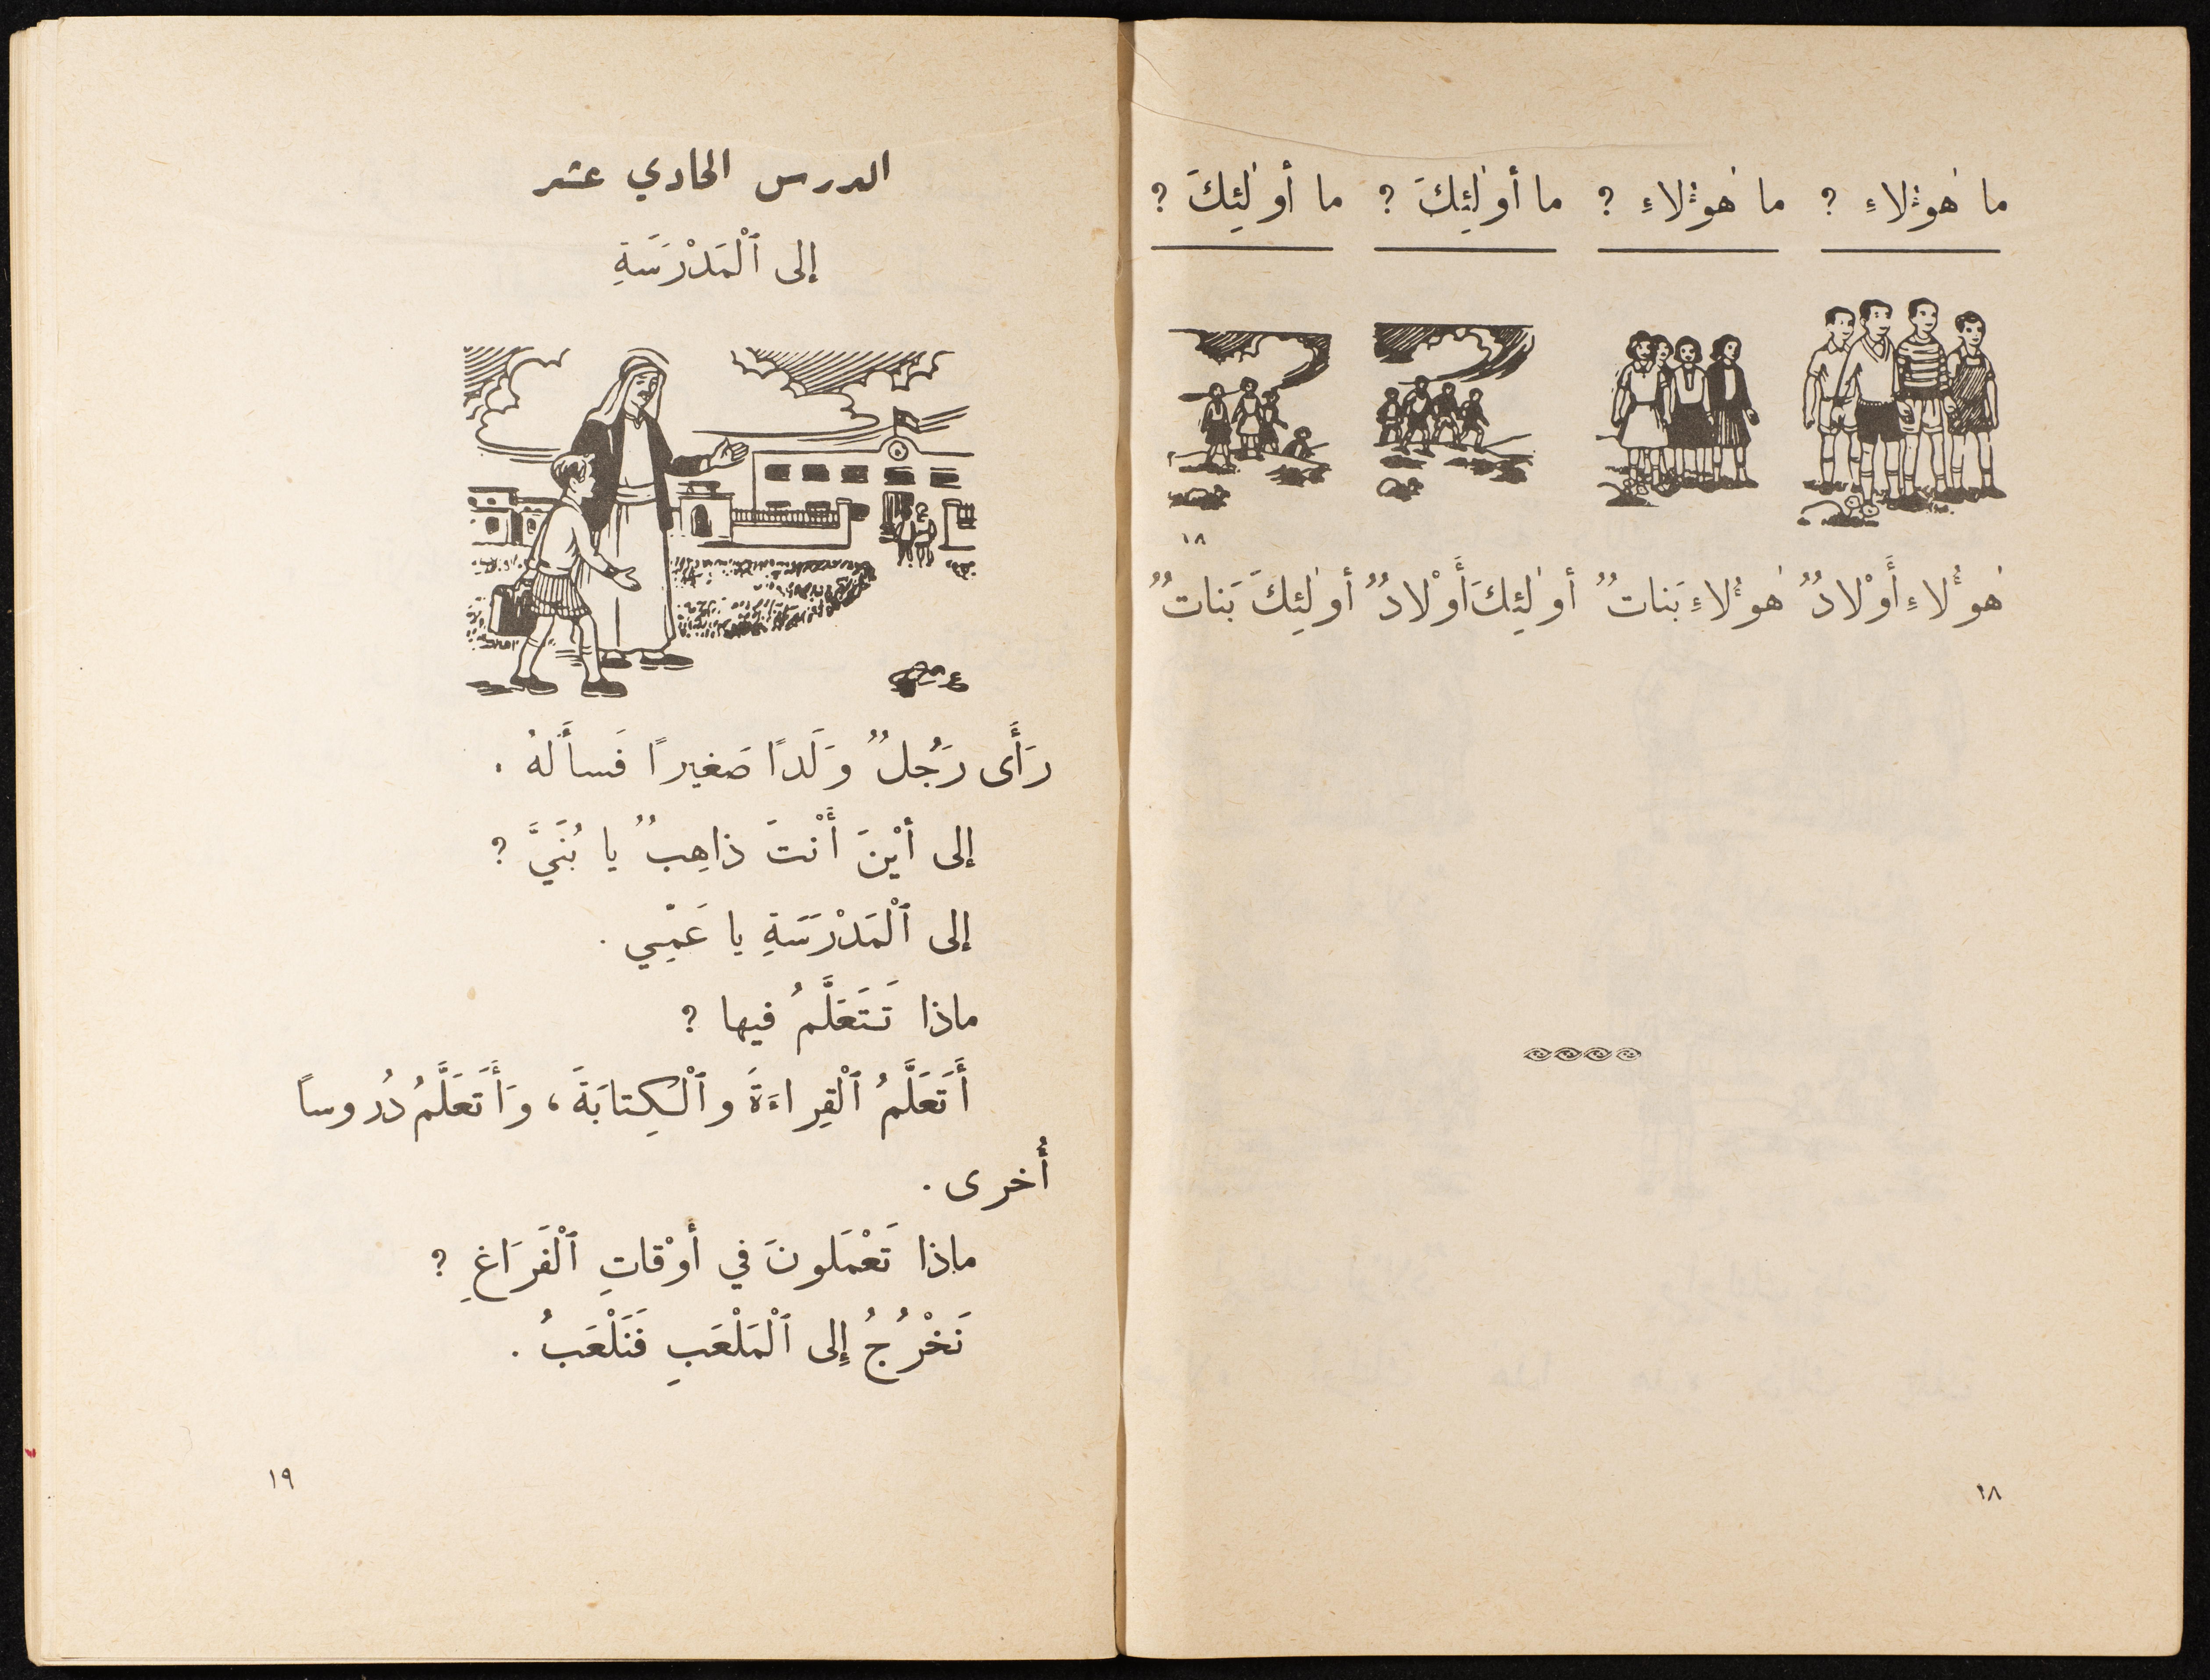 ما هٰوُٴلاءِ ? ما هٰوُٴلاءِ ? ما أولٰئِكَ ? ما أولٰئِكَ ?
١٨
هٰوُٴلاءِ أَوْلادٌ هٰوُٴلاءِ بَناتٌ أولٰئِكَ أَوْلادٌ أولٰئِكَ بَناتٌ
١٨
الدرس الحادي عشر
إلى ٱلْمَدْرَسَةِ
رَأَى رَجُلٌ وَلَدًا صَغيرًا فَسأَلهُ .
إلى أيْنَ أَنْتَ ذاهِبٌ يا بُنَيَّ ?
إلى ٱلْمَدْرَسَةِ يا عَمِّي .
ماذا تَتَعَلَّمُ فيها ?
أَتَعَلَّمُ ٱلْقِراءَةَ وٱلْكِتابَةَ ، وَأَتَعَلَّمُ دُروساً
أُخرى .
ماذا تَعْمَلونَ في أَوْقاتِ ٱلْفَرَاغِ ?
نَخْرُجُ إِلى ٱلْمَلْعَبِ فَنَلْعَبُ .
١٩